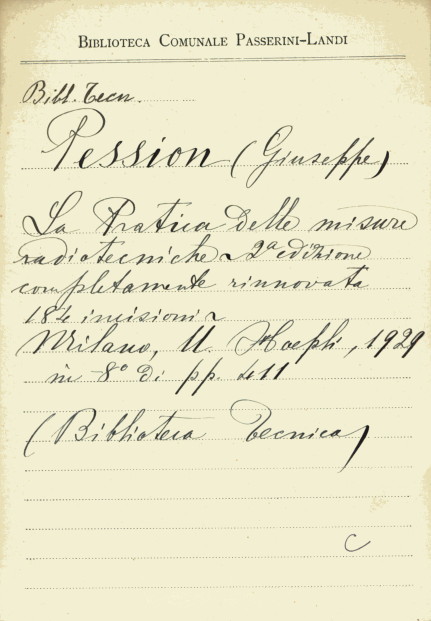 BIBLIOTECA COMUNALE PASSERINI-LANDI
Bibl. Tecn.
Pession (Giuseppe)
La Pratica delle misure
radiotecniche ~ 2ª edizione
completamente rinnovata
184 incisioni ~
Milano, U. Hoepli, 1929
in - 8º di pp. 411
(Biblioteca Tecnica)
C